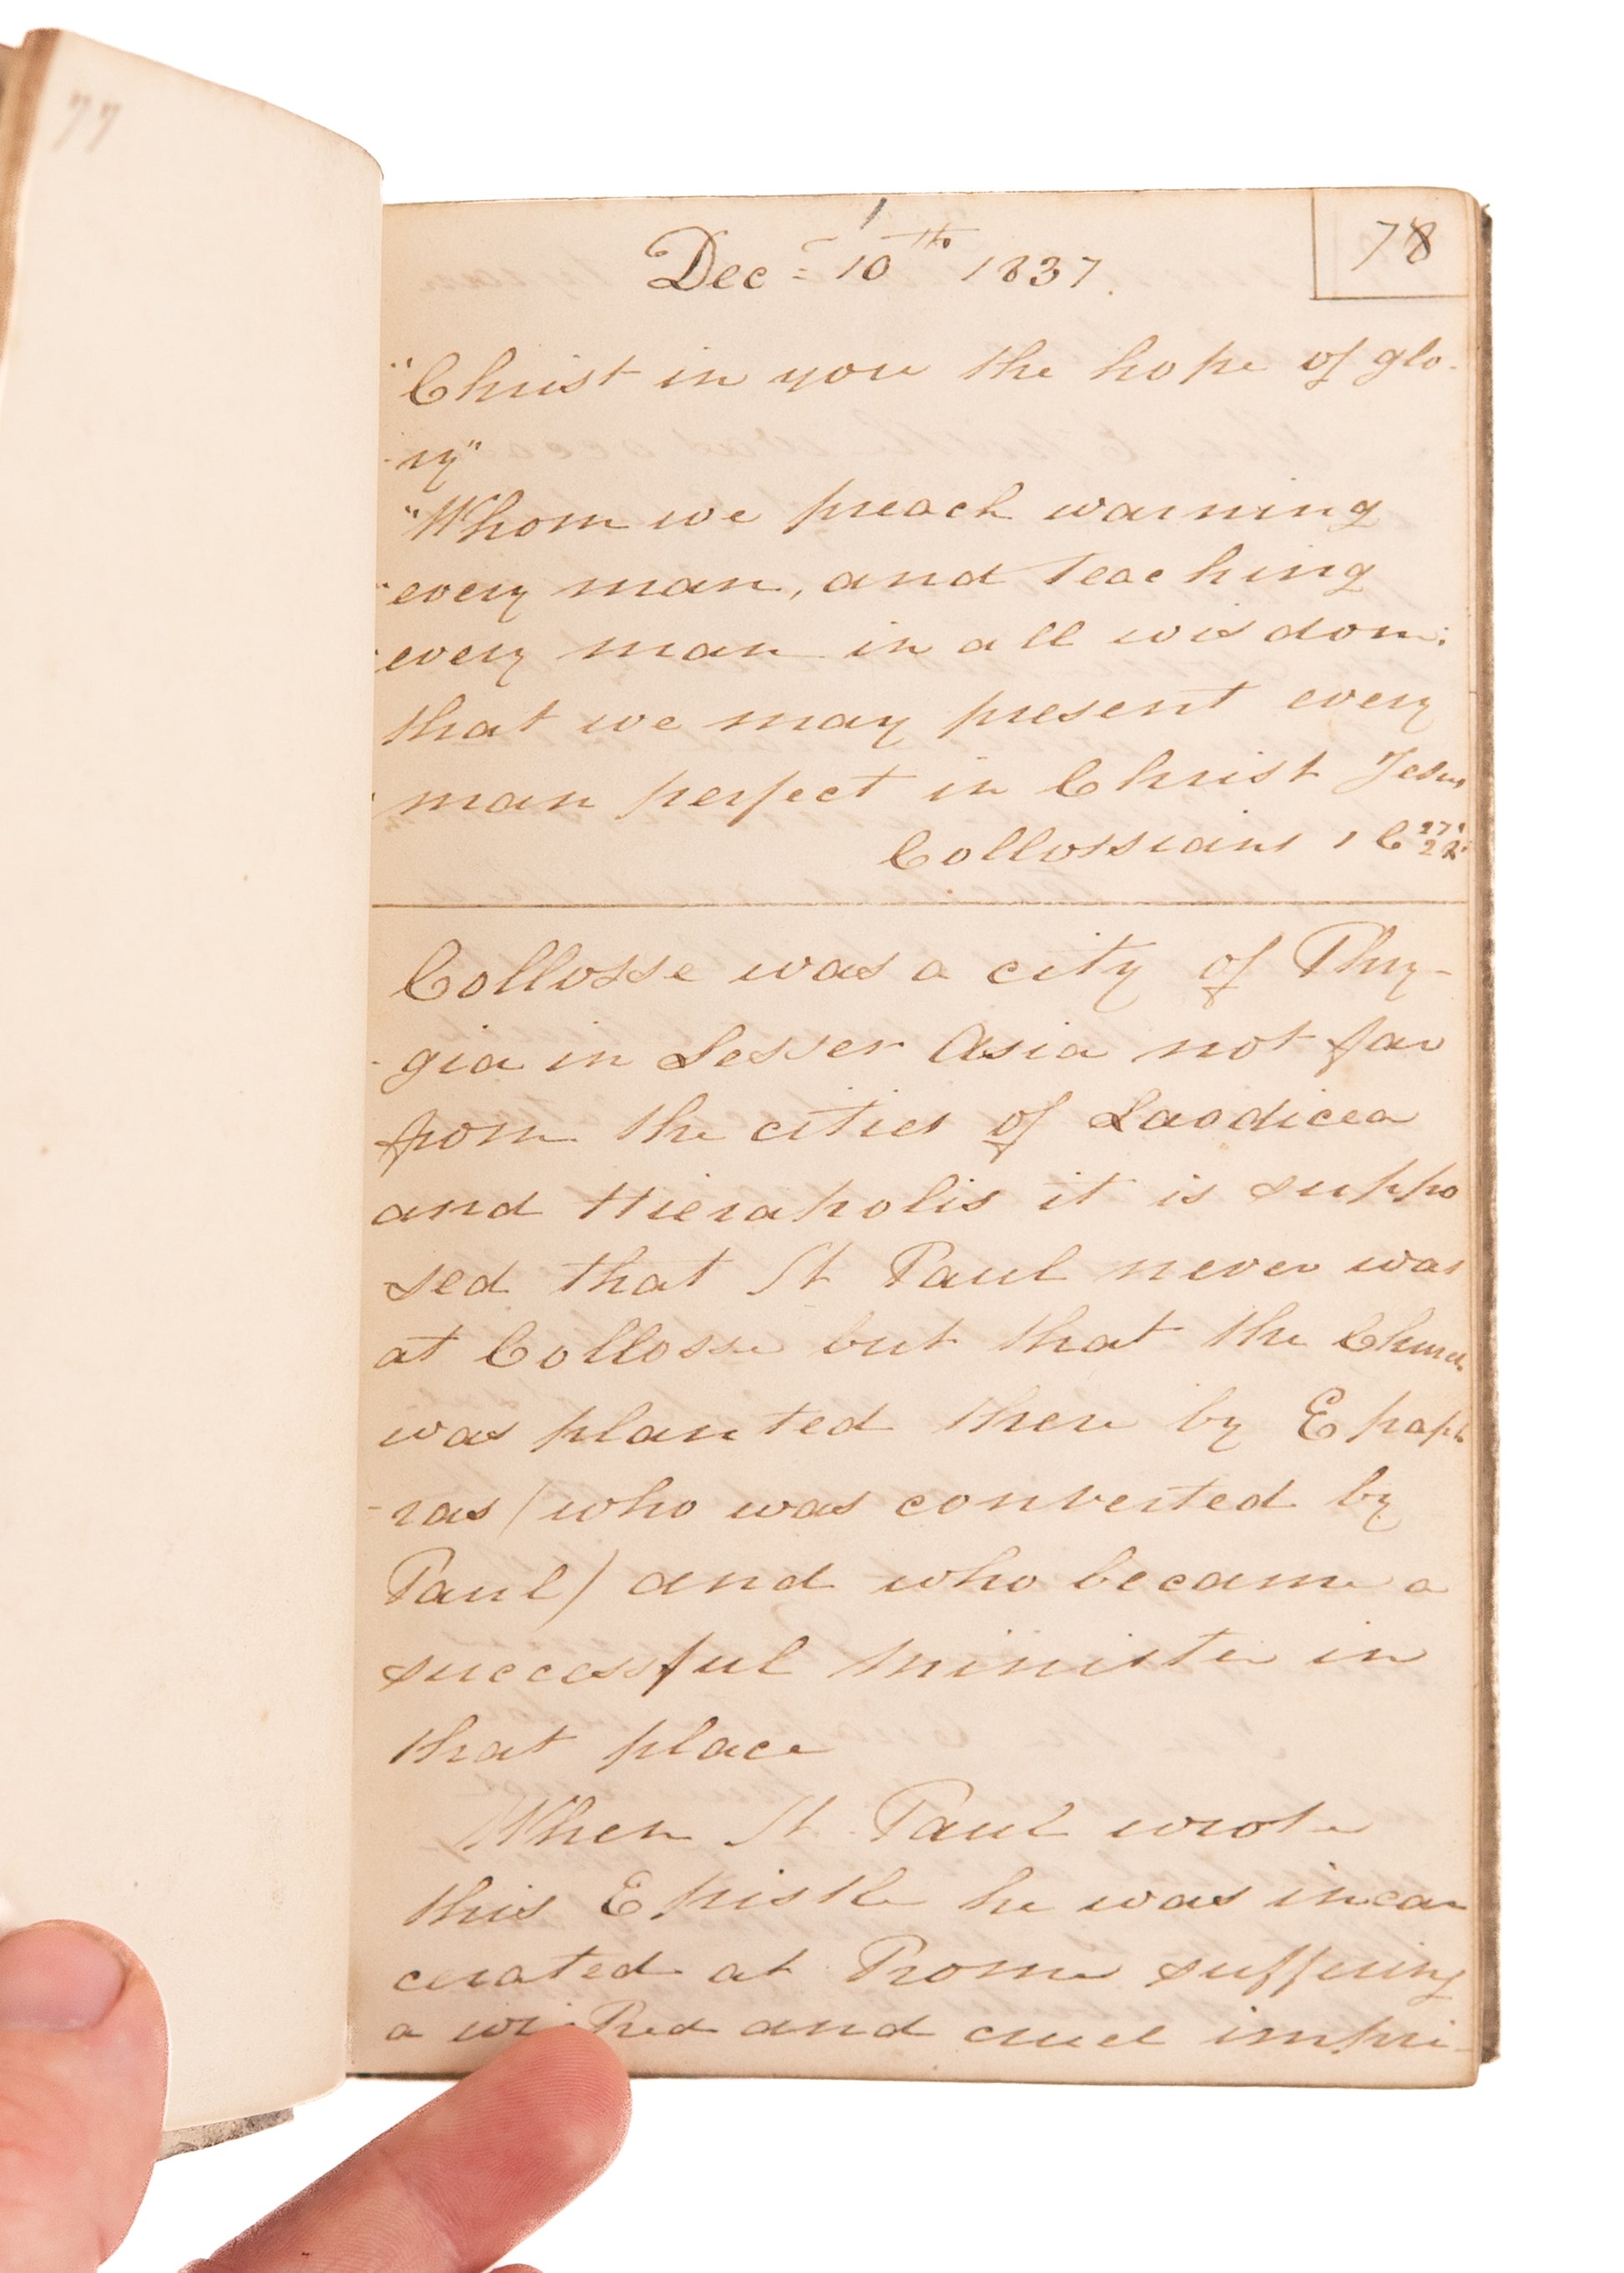 77
78
Dec = 10th 1837.
"Christ in you the hope of glo-
-ry"
"Whom we preach warning
"every man, and teaching
"every man in all wisdom:
that we may present every
"man perfect in Christ Jesus
Collossians 1 C 27.
28.
Collosse was a city of Phry-
-gia in Lesser Asia not far
from the cities of Laodicea
and Hierapolis it is suppo
sed that St Paul never was
at Collosse but that the Church
was planted there by Epaph
-ras (who was converted by
Paul) and who became a
successful minister in
that place
When St Paul wrote
this Epistle he was incar
cerated at Rome suffering
a wicked and cruel impri-